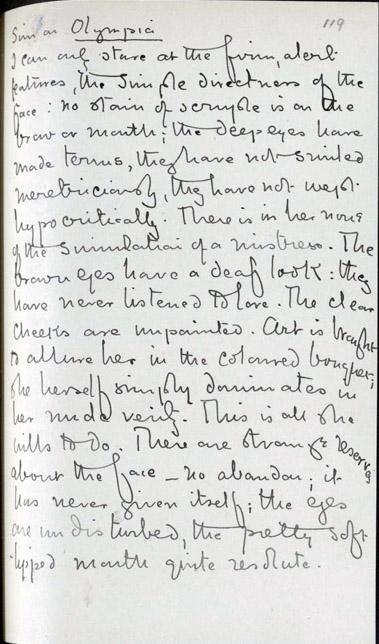 Sim on Olympia 119
I can only stare at the firm, alert
features, the simple directness of the
face: no stain of scruple is on the
brow or mouth; the deep eyes have
made terms, they have not smiled
meretriciously, they have not wept
hypocritically. There is in her none
of the simulation of a mistress. The
brown eyes have a deaf look: they
have never listened to love. The clear
cheeks are unpainted. Art is brought
to allure her in the coloured bouquet;
she herself simply dominates in
her nude verity. This is all she
wills to do. There are strange reserves
about the face – no abandon; it
has never given itself; the eyes
are undisturbed, the pretty soft
lipped mouth quite resolute.